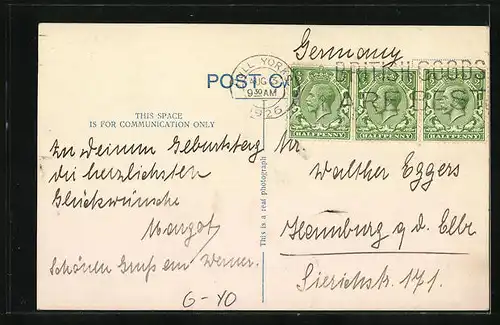 Germany
HULL YORKS
AUG 5
9 30 AM
1926
BRITISH GOODS
ARE BEST
POST CA
HALFPENNY HALFPENNY HALFPENNY
THIS SPACE
IS FOR COMMUNICATION ONLY
Zu deinem Geburtstag
die herzlichsten
Glückwünsche
Margot
Schönen Gruss an Werner.
6-40
This is a real photograph
Mr.
Walther Eggers
Hamburg a. d. Elbe
Sierichstr. 171.